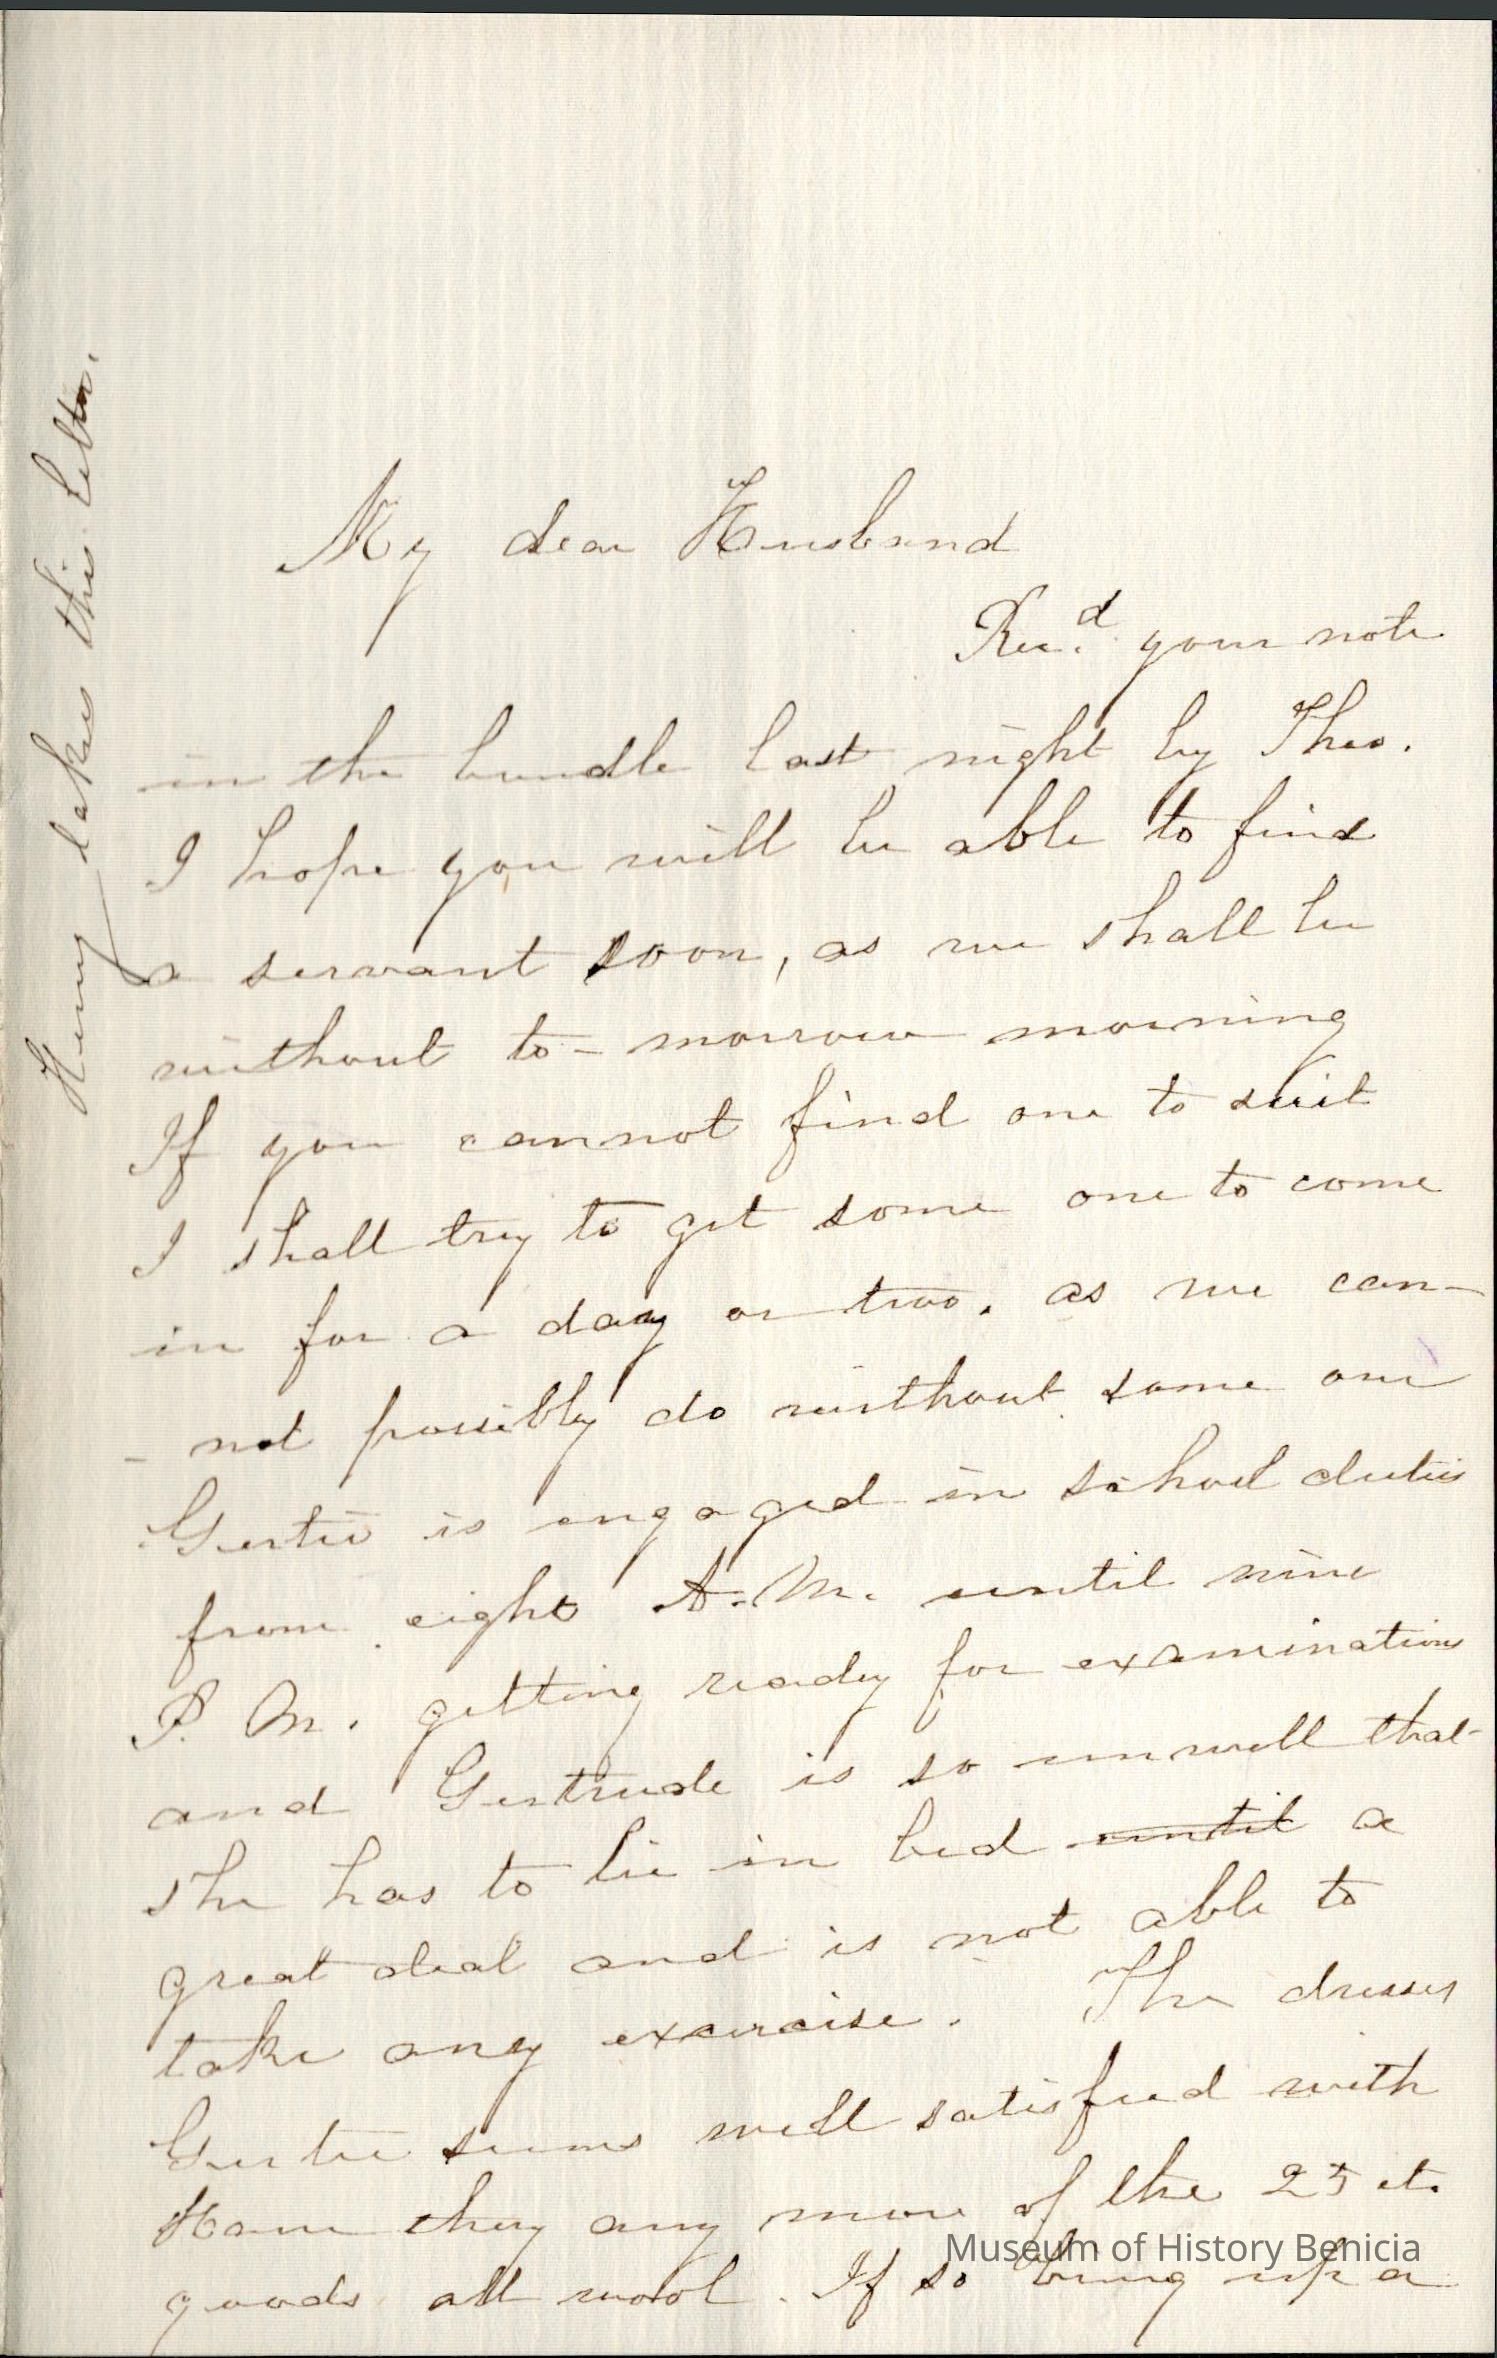 My dear Husband
Rec.d your note
in the bundle last night by Theo.
I hope you will be able to find
a servant soon, as we shall be
without to-morrow morning
If you cannot find one to suit
I shall try to get some one to come
in for a day or two. as we can-
- not possibly do without some one
Gertie is engaged in school duties
from eight A.M. until nine
P.M. getting ready for examinations
and Gertrude is so unwell that
she has to lie in bed until a
great deal and is not able to
take any excercise. The dresses
Gertie seems well satisfied with
Have they any more of the 25 ct.
goods all wool. If so bring up a
Henry takes this letter.
Museum of History Benicia